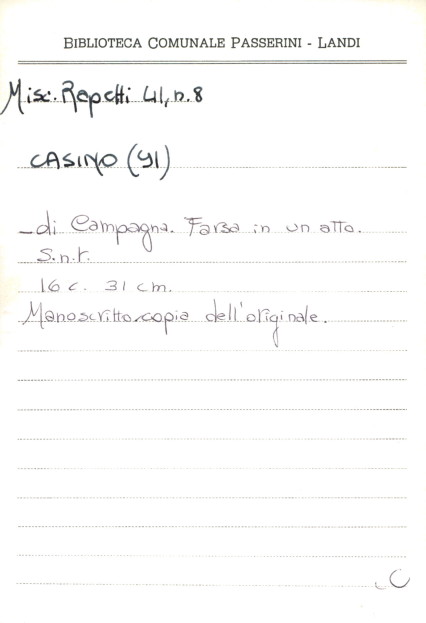 BIBLIOTECA COMUNALE PASSERINI - LANDI
Misc. Repetti 41, n. 8
CASINO (91)
- di Campagna. Farsa in un atto.
S.n.t.
16 c. 31 cm.
Manoscritto copia dell'originale.